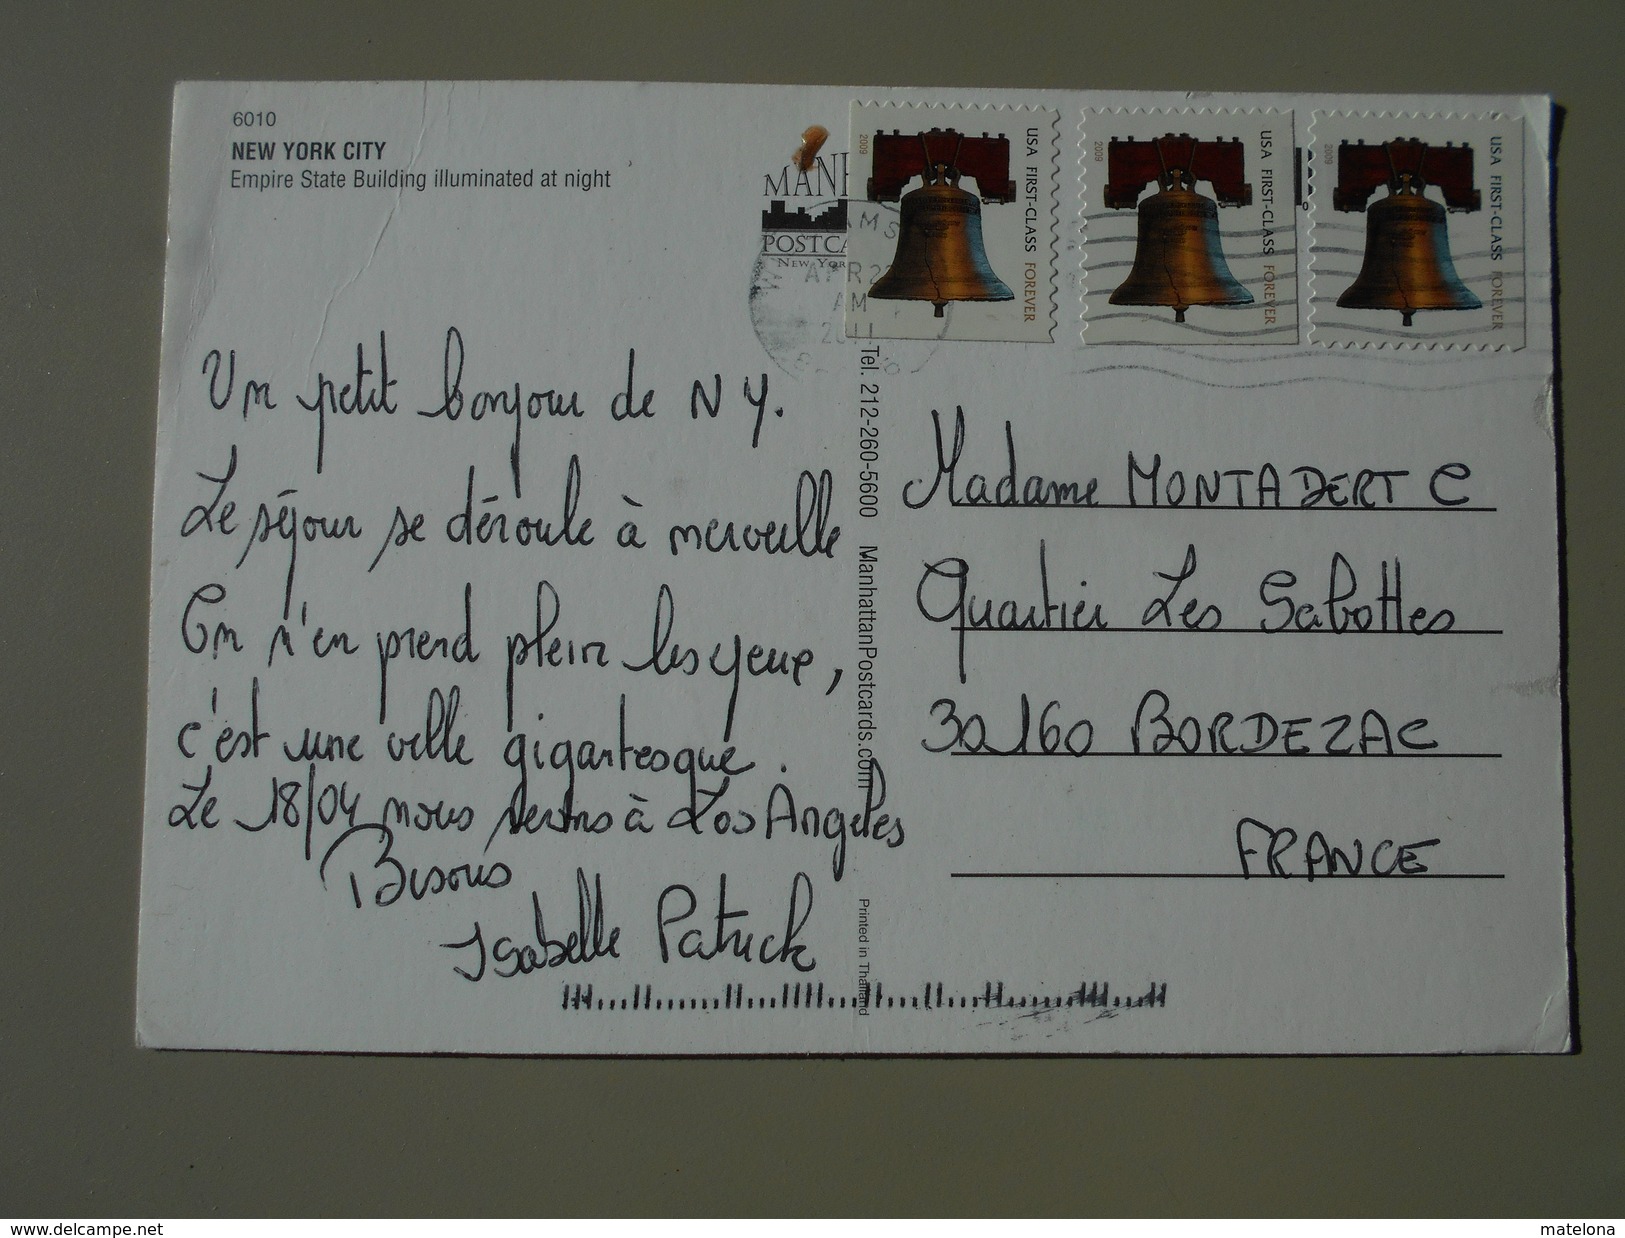 6010
NEW YORK CITY
Empire State Building illuminated at night
MANH
POSTCA
NEW YOR
AMS
APR 2
AM
2011
USA FIRST-CLASS FOREVER
2009
USA FIRST-CLASS FOREVER
2009
USA FIRST-CLASS FOREVER
2009
Un petit bonjour de NY.
Le séjour se déroule à merveille
On n'en prend plein les yeux,
c'est une ville gigantesque.
Le 18/04 nous serons à Los Angeles
Bisous
Isabelle Patrick
Tel. 212-260-5600 ManhattanPostcards.com
Printed in Thailand
Madame MONTADERT C
Quartier Les Sabottes
30160 BORDEZAC
FRANCE
www.delcampe.net
matelona